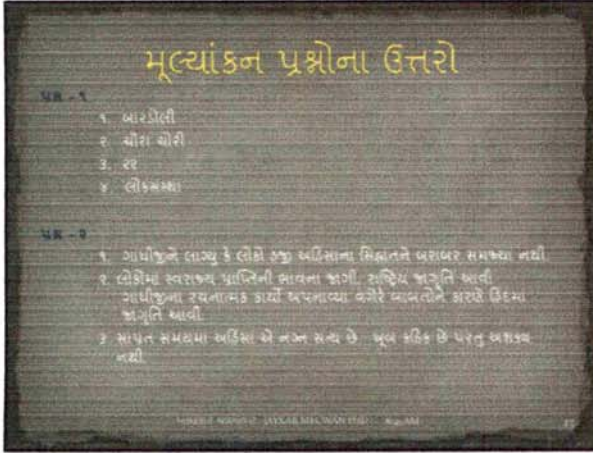 મૂલ્યાંકન પ્રશ્નોના ઉત્તરો
પ્રશ્ન - ૧
૧. બારડોલી
૨. ચૌરા ચૌરી
૩. ૨૨
૪. લોકસંસ્થા
પ્રશ્ન - ૨
૧. ગાંધીજીને લાગ્યુ કે લોકો હજી અહિંસાના સિદ્ધાતને બરાબર સમજ્યા નથી.
૨. લોકોમાં સ્વરાજ્ય પ્રાપ્તિની ભાવના જાગી, રાષ્ટ્રિય જાગૃતિ આવી.
ગાંધીજીના રચનાત્મક કાર્યો અપનાવ્યા વગેરે બાબતોને કારણે હિંદમાં
જાગૃતિ આવી.
૩. સાંપ્રત સમયમાં અહિંસા એ નગ્ન સત્ય છે. ખૂબ કઠિન છે પરંતુ અશક્ય
નથી.